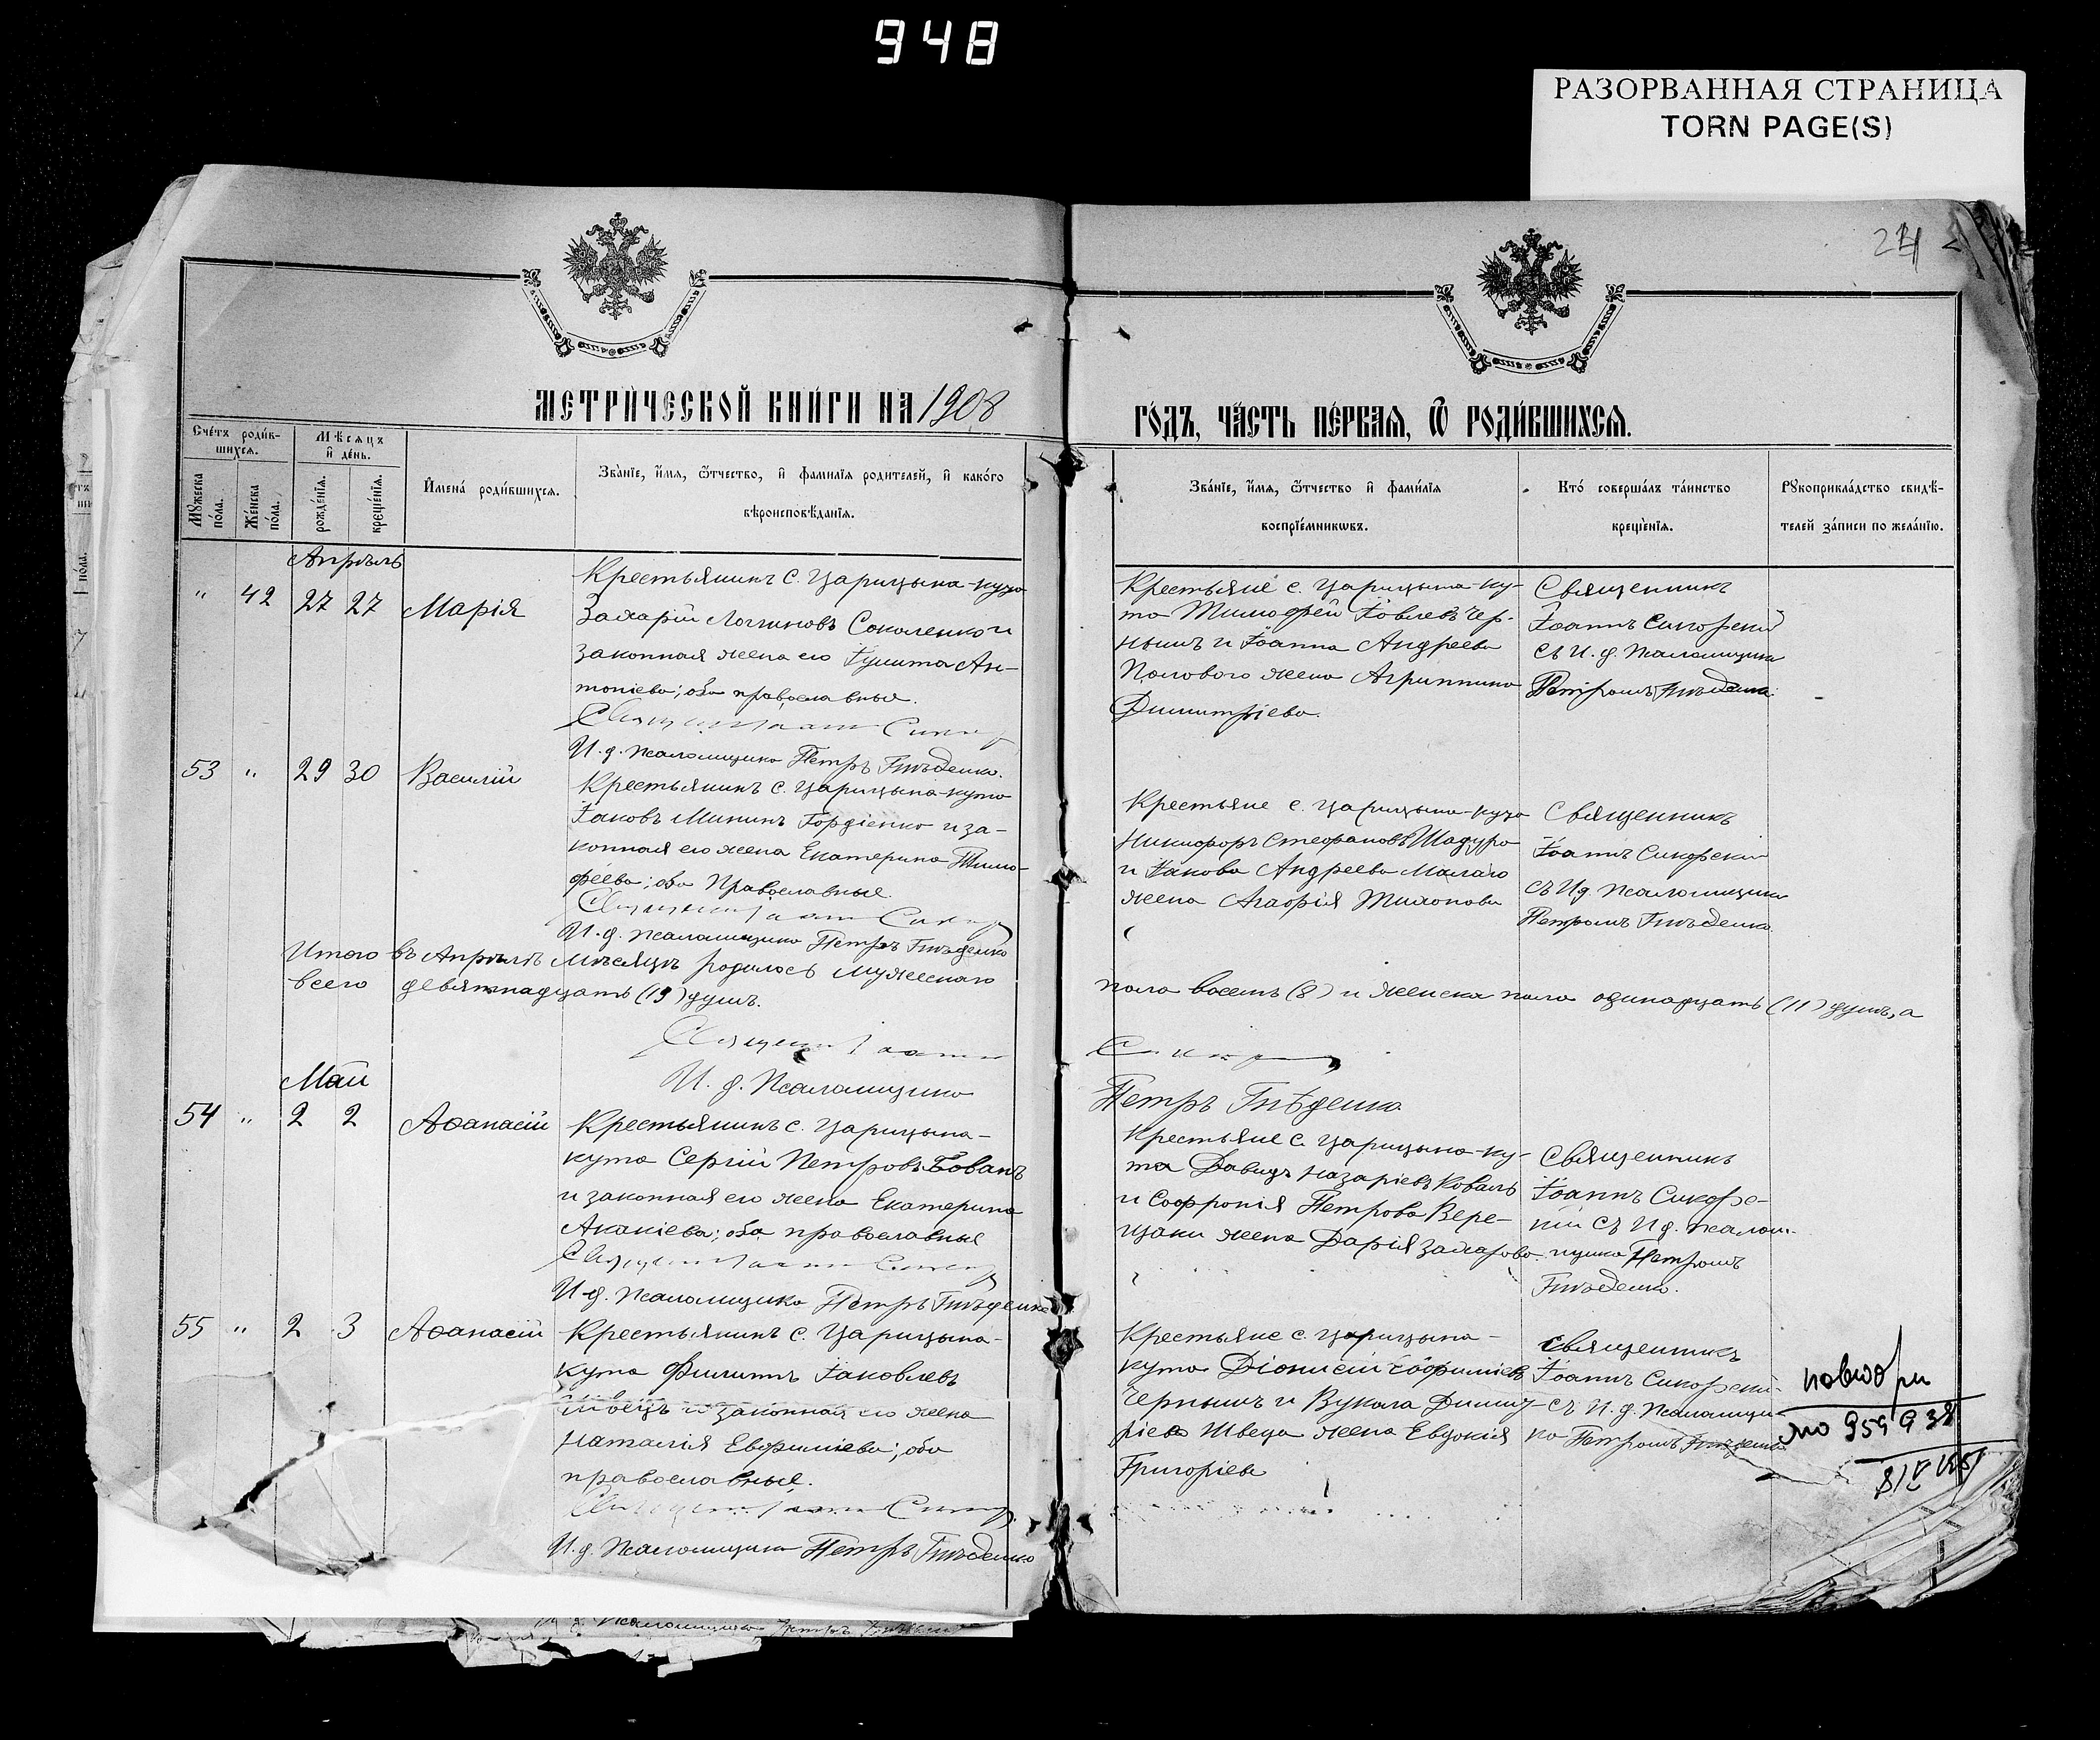 948
РАЗОРВАННАЯ СТРАНИЦА
TORN PAGE(S)
24
МЕТРИ́ЧЕСКОЙ КНИ́ГИ НА 1908
ГО́ДЪ, ЧА́СТЬ ПЕ́РВАѦ, Ѿ РОДИ́ВШИХСѦ.
Счетъ роди́вшихсѧ.
Мѣсѧцъ и҆ де́нь.
Мꙋжеска по́ла.
Же́нска по́ла.
рожде́нїѧ.
креще́нїѧ.
И҆мена́ роди́вшихсѧ.
Зва́нїе, и҆́мѧ, ѻ҆́тчество, и҆ фами́лїѧ роди́телей, и҆ како́го
вѣроисповѣ́данїѧ.
Зва́нїе, и҆́мѧ, ѻ҆́тчество и҆ фами́лїѧ
воспрїе́мникѡвъ.
Кто̀ соверша́лъ та́инство
креще́нїѧ.
Рꙋкоприкла́дство свидѣ́-
телей за́писи по жела́нїю.
Апрѣль
" 42 27 27 Марія
Крестьянинъ с. Царицына-кута
Захарій Логгиновъ Соколенко и
законная жена его Іулитта Ан-
тоніева; оба православные.
И. д. псаломщика Петръ Гнѣденко.
Крестьяне с. Царицына-ку-
та Тимофей Іовлевъ Чер-
нышъ и Іоанна Андреева
Полового жена Агриппина
Димитріева.
Священникъ
Іоаннъ Сикорскій
съ И. д. псаломщика
Петромъ Гнѣденко
53 " 29 30 Василій
Крестьянинъ с. Царицына-кута
Іаковъ Мининъ Гордіенко и за-
конная его жена Екатерина Тимо-
феева; оба Православные.
И. д. псаломщика Петръ Гнѣденко
Крестьяне с. Царицына-кута
Никифоръ Стефановъ Шадура
и Іакова Андреева Малаго
жена Агафія Тихонова
Священникъ
Іоаннъ Сикорскій
съ И д. псаломщика
Петромъ Гнѣденко
Итого въ Апрѣлѣ мѣсяцѣ родилось мужескаго
пола восемь (8) и женска пола одинадцать (11) душъ, а
всего девятнадцать (19) душъ.
И. д. Псаломщика
Петръ Гнѣденко
Май
54 " 2 2 Аѳанасій
Крестьянинъ с. Царицына-
кута Сергій Петровъ Бованъ
и законная его жена Екатерина
Акакіева; оба православные
И. д. псаломщика Петръ Гнѣденко
Крестьяне с. Царицына-ку-
та Давидъ Назаріевъ Коваль
и Софронія Петрова Вере-
щаки жена Дарія Захарова
Священникъ
Іоаннъ Сикорс-
кій съ И д. псалом-
щика Петромъ
Гнѣденко.
55 " 2 3 Аѳанасій
Крестьянинъ с. Царицына-
кута Филиппъ Іаковлевъ
Швецъ и законная его жена
Наталія Евфиміева; оба
православные.
И. д. псаломщика Петръ Гнѣденко
Крестьяне с. Царицына-
кута Діонисій Евфиміевъ
Чернышъ и Вукола Димит-
ріева Швеца жена Евдокія
Григоріева
Священникъ
Іоаннъ Сикорскій
съ И. д. псаломщи-
ка Петромъ Гнѣденко